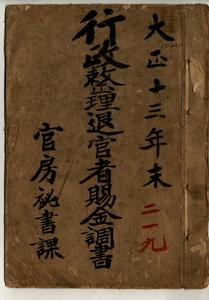 大正十三年末
二一九
行政整理退官者賜金調書
官房祕書課